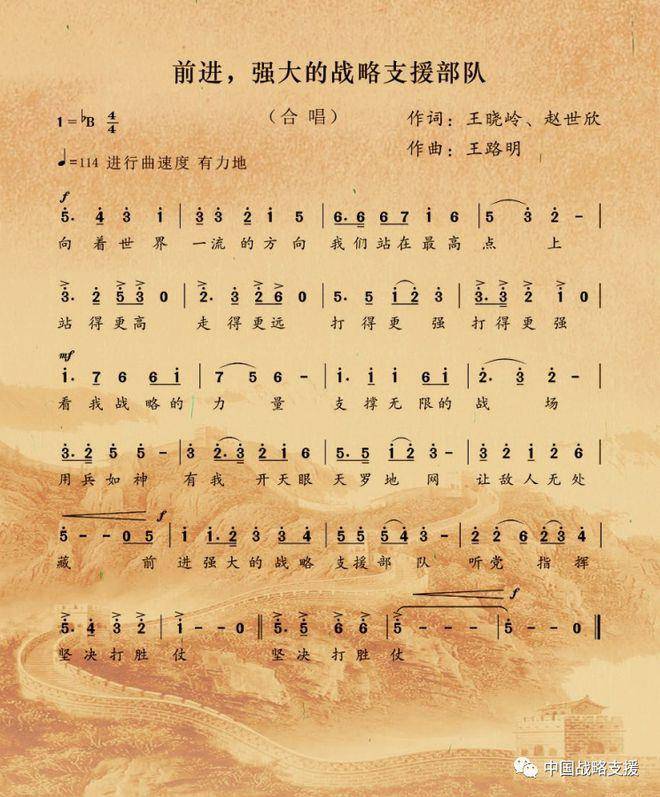 前进，强大的战略支援部队
（合唱）
1=♭B 4/4
作词：王晓岭、赵世欣
♩=114 进行曲速度 有力地
作曲：王路明
f
5. 4 3 1 | 3 3 2 1 5 | 6. 6 6 7 1 6 | 5 3 2 - |
向着世界 一流的方向 我们站在最高点 上
3. 2 5 3 0 | 2. 3 2 6 0 | 5. 5 1 2 3 | 3. 3 2 1 0 |
站得更高 走得更远 打得更强 打得更强
mf
1. 7 6 6 1 | 7 5 6 - | 1. 1 1 6 1 | 2. 3 2 - |
看我战略的 力量 支撑无限的 战场
3. 2 5 5 - | 3 2 3 2 1 6 | 5. 5 1 2 3 | 2 2 2 1 6 |
用兵如神 有我 开天眼 天罗地网 让敌人无处
f
5 - - 0 5 | 1 1. 2 3 3 4 | 5 5 5 4 3 | 2 2 2 3 4 |
藏 前进强大的战略 支援部队 听党 指挥
f
5. 4 3 2 | 1 - - 0 ‖ 5. 5 6 6 | 5 - - - | 5 - - 0 ‖
坚决打胜仗 坚决打胜仗
中国战略支援